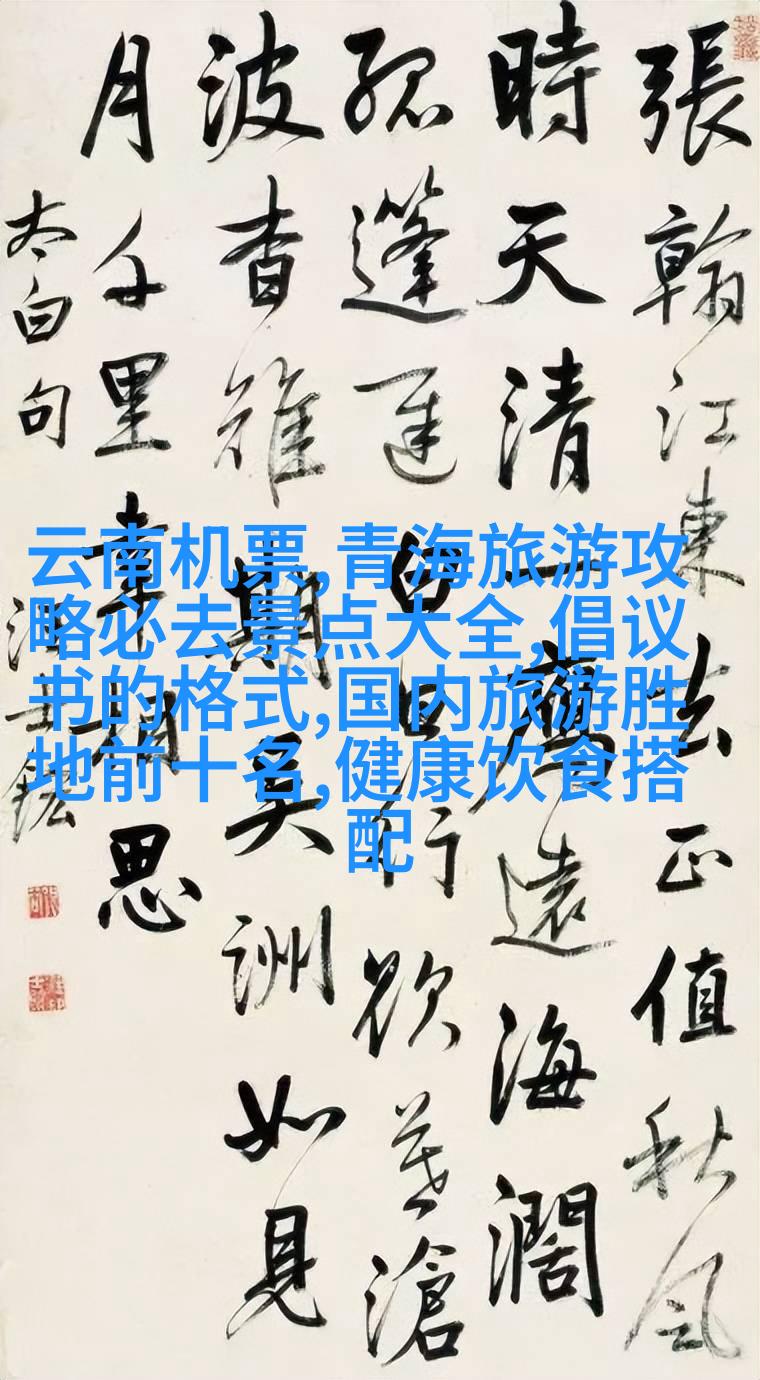 張翰江東去正值秋風
時天清一鴈遠海濶
孤篷遲白日行欲暮滄
波杳難期吳洲如見
月千里幸相思
太白句
汪士鋐
云南机票,青海旅游攻
略必去景点大全,倡议
书的格式,国内旅游胜
地前十名,健康饮食搭
配